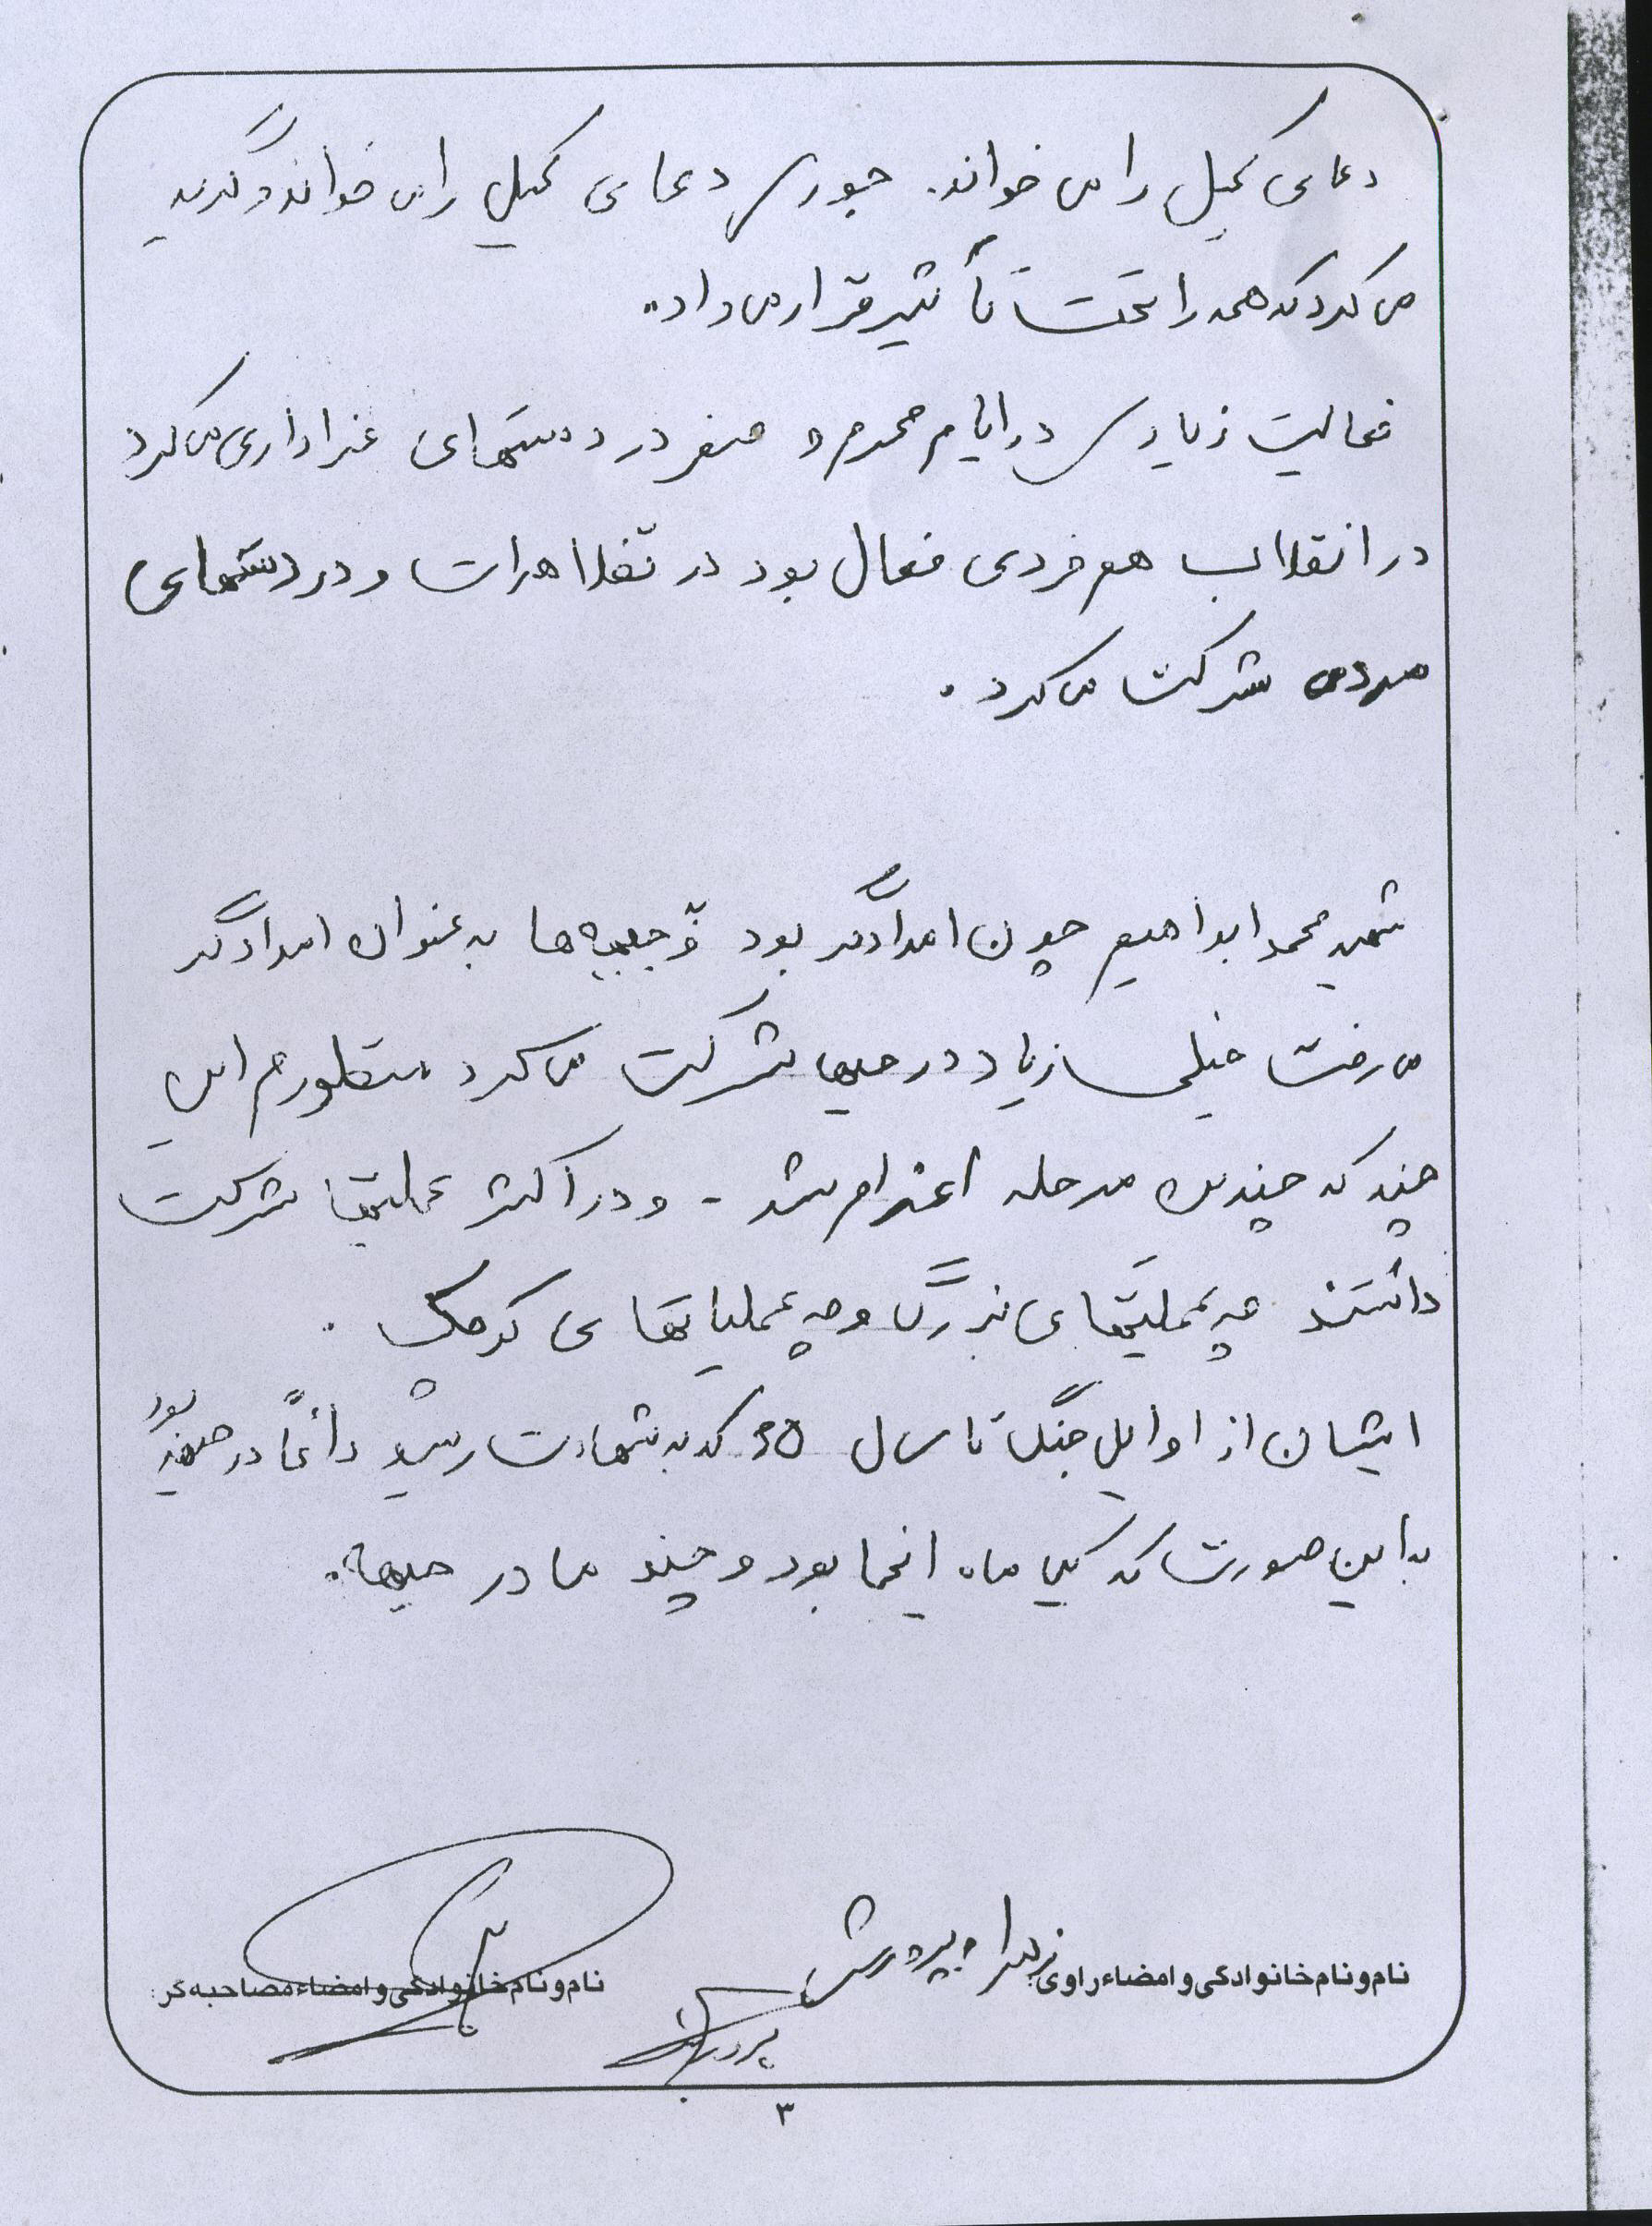 دعای کمیل را می خواند. جوری دعای کمیل را می خواند و گریه
می کرد که همه را تحت تأثیر قرار می داد.
فعالیت زیادی در ایام محرم و صفر در دستهای عزاداری می کرد
در انقلاب هم فردی فعال بود در تظاهرات و در دستهای
مردمی شرکت می کرد.
شهید محمد ابراهیم چون امدادگر بود و جبهه ها به عنوان امدادگر
می رفت خیلی زیاد در جبهه شرکت می کرد منظورم این
چند که چندین مرحله اعزام شد - و در اکثر عملیتها شرکت
داشتند چه عملیتهای بزرگ و چه عملیاتهای کوچک.
ایشان از اوایل جنگ تا سال 65 که به شهادت رسید دائماً در جبهه بود
به این صورت که یک ماه اینجا بود و چند ماه در جبهه.
نام و نام خانوادگی و امضاء راوی: زهرا پرورش
نام و نام خانوادگی و امضاء مصاحبه گر:
۳